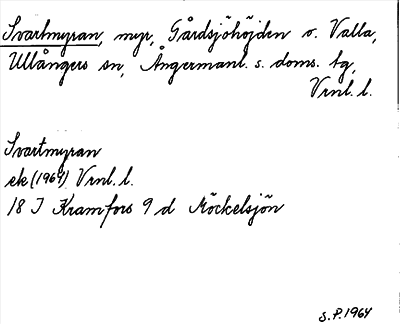 Svartmyran, myr, Gårdsjöhöjden o. Valla,
Ullångers sn, Ångermanl. s. doms. tg,
Vrnl. l.
Svartmyran
ek (1964) Vrnl. l.
18 I Kramfors 9 d Möckelsjön
S.P. 1964